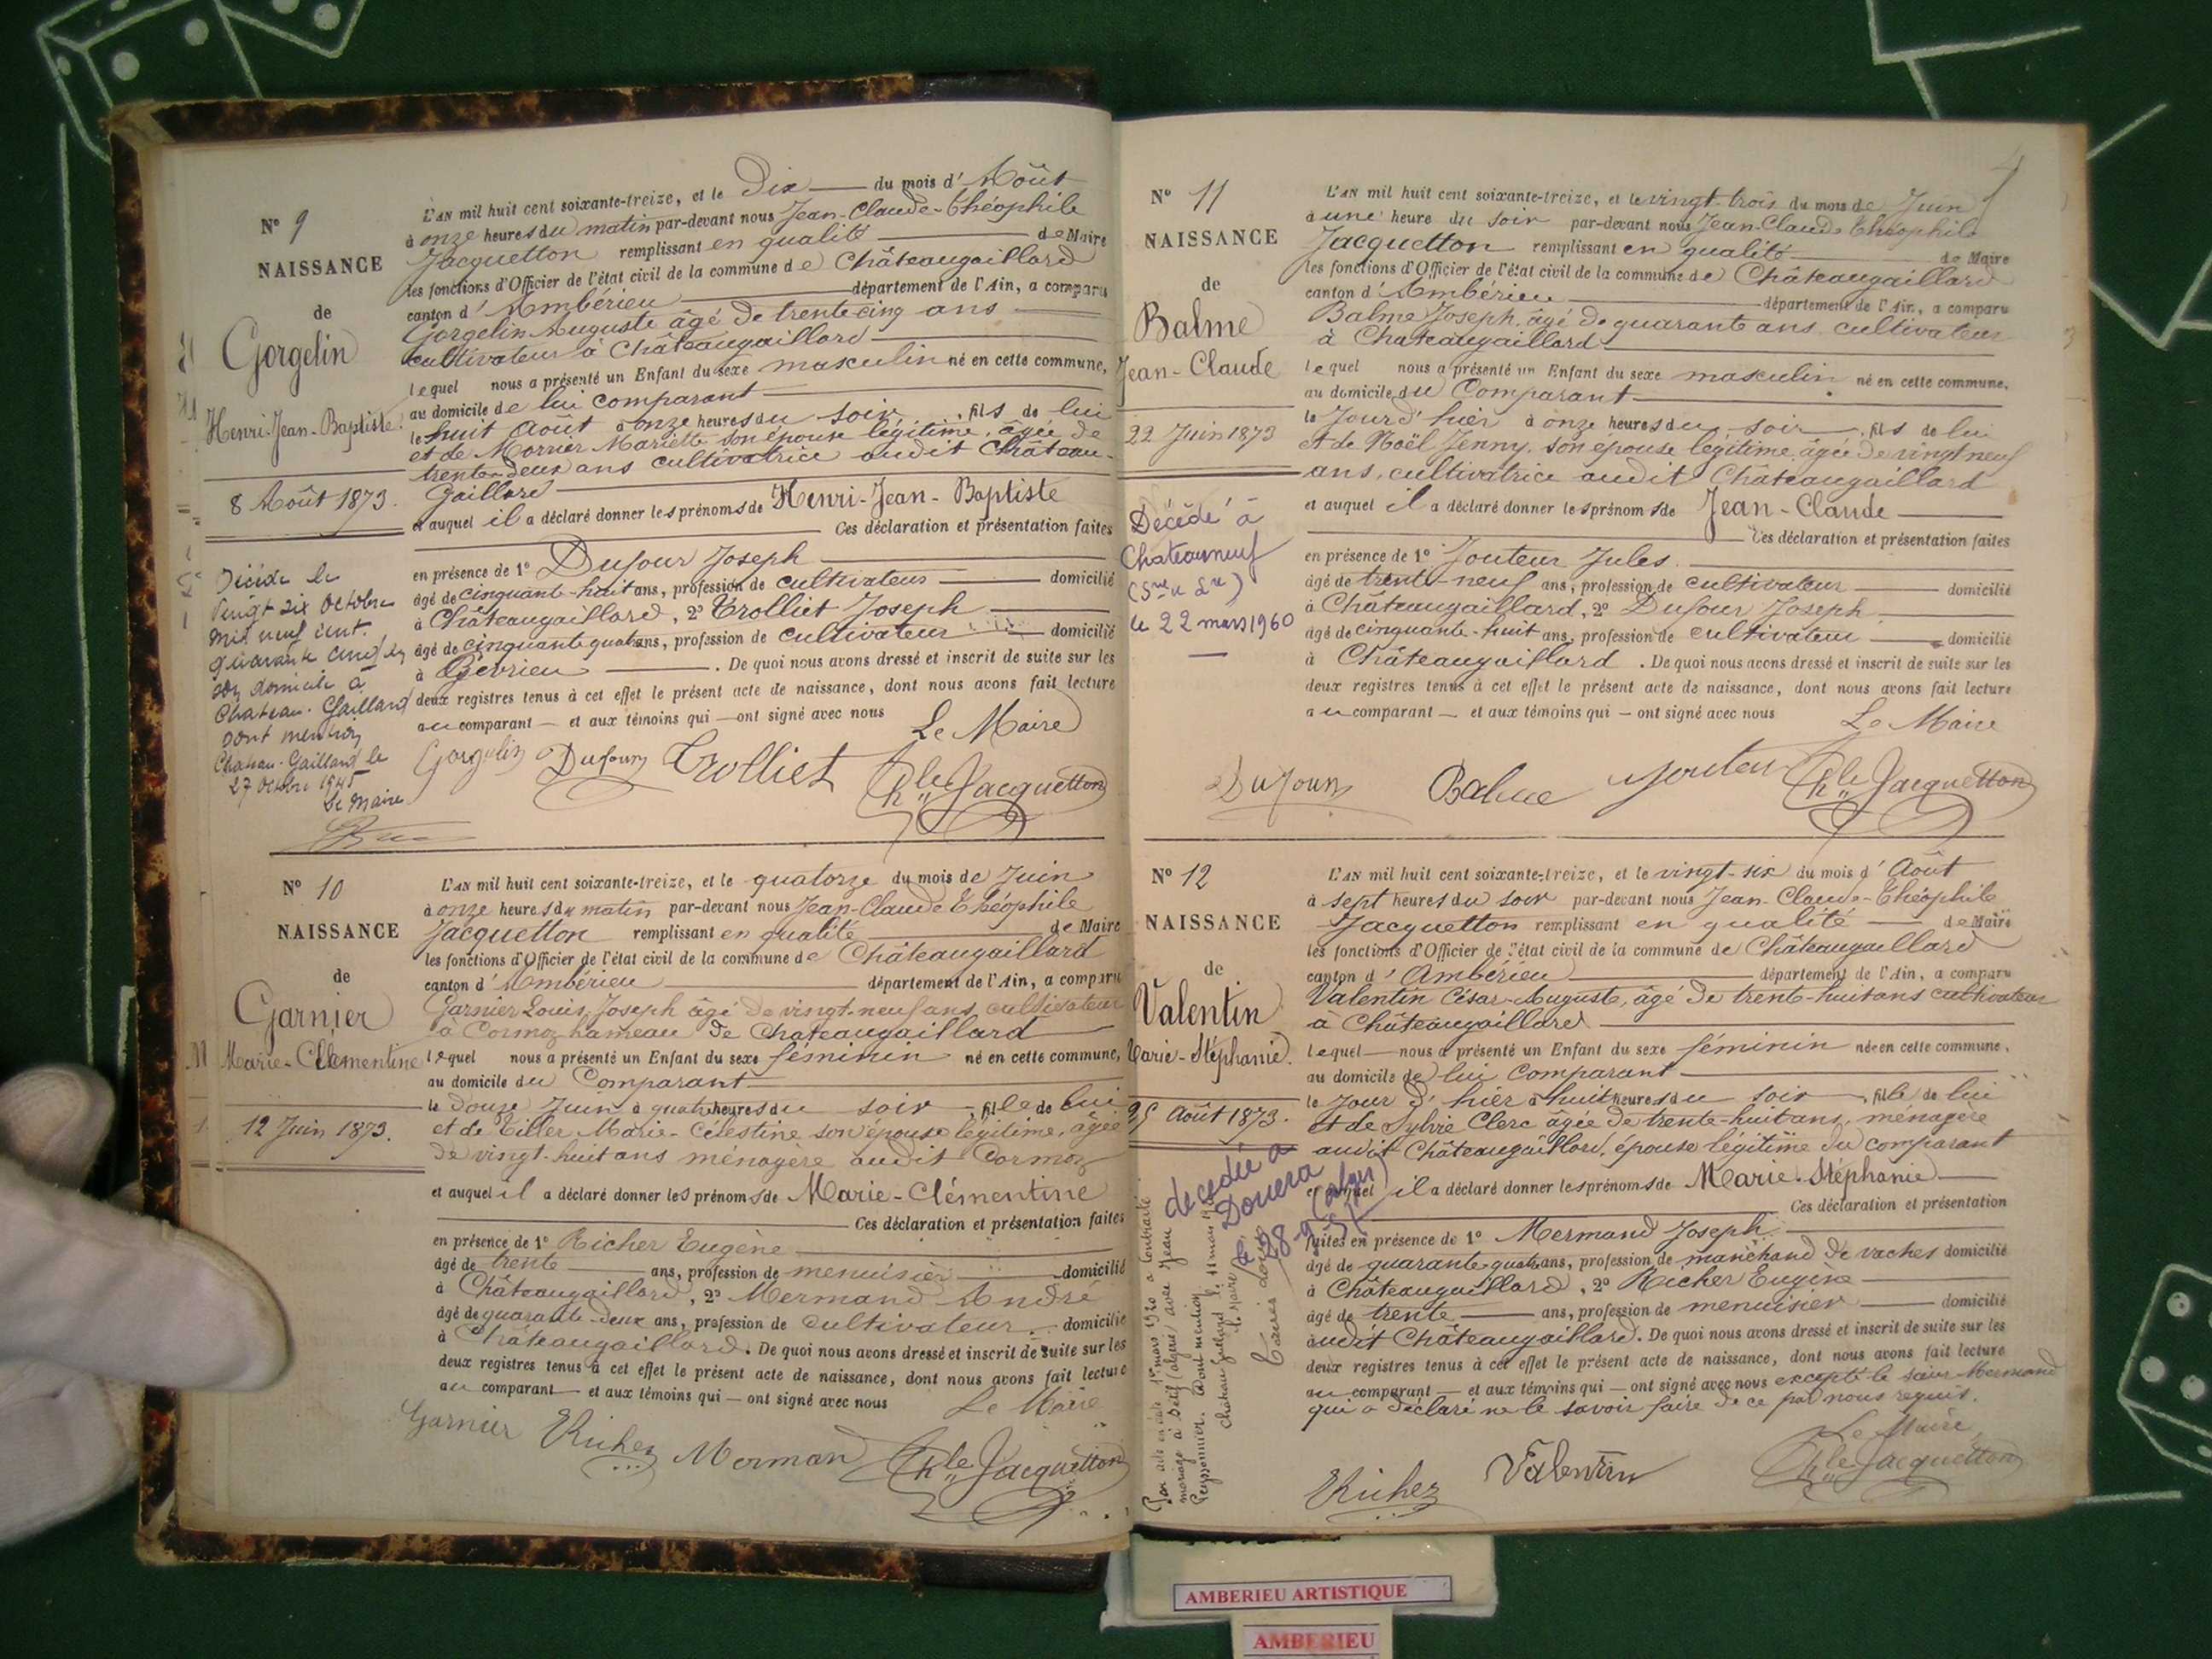 N° 9
NAISSANCE
de
Gorgelin
Henri-Jean-Baptiste
8 Août 1873.
Décédé le
Vingt six Octobre
mil neuf cent.
quarante cinq en
son domicile à
Chateau-Gaillard
dont mention
Chateau-Gaillard le
27 Octobre 1945
Le Maire
L'AN mil huit cent soixante-treize, et le Dix du mois d'Août
à onze heures du matin par-devant nous Jean-Claude-Théophile
Jacquetton remplissant en qualité de Maire
les fonctions d'Officier de l'état civil de la commune de Châteaugaillard
canton d'Ambérieu département de l'Ain, a comparu
Gorgelin Auguste âgé de trente-cinq ans
cultivateur à Châteaugaillard
lequel nous a présenté un Enfant du sexe masculin né en cette commune,
au domicile de lui comparant
le huit Août à onze heures du soir, fils de lui
et de Morrier Mariette son épouse légitime, âgée de
trente-deux ans cultivatrice audit Château-
Gaillard
et auquel il a déclaré donner les prénoms de Henri-Jean-Baptiste
Ces déclaration et présentation faites
en présence de 1° Dufour Joseph
âgé de cinquante-huit ans, profession de cultivateur domicilié
à Châteaugaillard, 2° Trolliet Joseph
âgé de cinquante quatre ans, profession de cultivateur domicilié
à Gévrieu. De quoi nous avons dressé et inscrit de suite sur les
deux registres tenus à cet effet le présent acte de naissance, dont nous avons fait lecture
au comparant et aux témoins qui ont signé avec nous
Le Maire
Gorgelin Dufour Trolliet Jacquetton
N° 10
NAISSANCE
de
Garnier
Marie-Clémentine
12 Juin 1873.
L'AN mil huit cent soixante-treize, et le quatorze du mois de Juin
à onze heures du matin par-devant nous Jean-Claude Théophile
Jacquetton remplissant en qualité de Maire
les fonctions d'Officier de l'état civil de la commune de Châteaugaillard
canton d'Ambérieu département de l'Ain, a comparu
Garnier Louis Joseph âgé de vingt-neuf ans, cultivateur
à Cormoz hameau de Chateaugaillard
lequel nous a présenté un Enfant du sexe féminin né en cette commune,
au domicile du Comparant
le Douze Juin à quatre heures du soir, fille de lui
et de Tiller Marie-Célestine son épouse légitime, âgée
de vingt-huit ans ménagère audit Cormoz
et auquel il a déclaré donner les prénoms de Marie-Clémentine
Ces déclaration et présentation faites
en présence de 1° Richer Eugène
âgé de trente ans, profession de menuisier domicilié
à Châteaugaillard, 2° Mermand André
âgé de quarante-deux ans, profession de cultivateur domicilié
à Châteaugaillard. De quoi nous avons dressé et inscrit de suite sur les
deux registres tenus à cet effet le présent acte de naissance, dont nous avons fait lecture
au comparant et aux témoins qui ont signé avec nous
Le Maire
Garnier Richer Merman Jacquetton
4
N° 11
NAISSANCE
de
Balme
Jean-Claude
22 Juin 1873
Décédé à
Chateauneuf
le 22 mars 1960
L'AN mil huit cent soixante-treize, et le vingt-trois du mois de Juin
à une heure du soir par-devant nous Jean-Claude Théophile
Jacquetton remplissant en qualité de Maire
les fonctions d'Officier de l'état civil de la commune de Châteaugaillard
canton d'Ambérieu département de l'Ain, a comparu
Balme Joseph, âgé de quarante ans, cultivateur
à Chateaugaillard
lequel nous a présenté un Enfant du sexe masculin né en cette commune,
au domicile du Comparant
le Jour d'hier à onze heures du soir, fils de lui
et de Noël Jenny, son épouse légitime, âgée de vingt neuf
ans, cultivatrice audit Châteaugaillard
et auquel il a déclaré donner les prénoms de Jean-Claude
Ces déclaration et présentation faites
en présence de 1° Jouteur Jules
âgé de trente-neuf ans, profession de cultivateur domicilié
à Châteaugaillard, 2° Dufour Joseph
âgé de cinquante-huit ans, profession de cultivateur domicilié
à Châteaugaillard. De quoi nous avons dressé et inscrit de suite sur les
deux registres tenus à cet effet le présent acte de naissance, dont nous avons fait lecture
au comparant et aux témoins qui ont signé avec nous
Le Maire
Dufour Balme Jouteur Jacquetton
N° 12
NAISSANCE
de
Valentin
Marie-Stéphanie.
25 Août 1873.
décédée à
Douera
(alger)
le 28-9-51
mariage à Sétif (algérie) avec Jean
Peyssonnier. Dont mention
Château-Gaillard le 11 mars
Le Maire
L'AN mil huit cent soixante-treize, et le vingt-six du mois d'Août
à sept heures du soir par-devant nous Jean-Claude-Théophile
Jacquetton remplissant en qualité de Maire
les fonctions d'Officier de l'état civil de la commune de Châteaugaillard
canton d'Ambérieu département de l'Ain, a comparu
Valentin César-Auguste, âgé de trente-huit ans cultivateur
à Châteaugaillard
lequel nous a présenté un Enfant du sexe féminin née en cette commune,
au domicile de lui Comparant
le Jour d'hier à huit heures du soir, fille de lui
et de Sylvie Clerc âgée de trente-huit ans, ménagère
audit Châteaugaillard, épouse légitime du comparant
et auquel il a déclaré donner les prénoms de Marie-Stéphanie
Ces déclaration et présentation
faites en présence de 1° Mermand Joseph
âgé de quarante-quatre ans, profession de marchand de vaches domicilié
à Châteaugaillard, 2° Richer Eugène
âgé de trente ans, profession de menuisier domicilié
audit Châteaugaillard. De quoi nous avons dressé et inscrit de suite sur les
deux registres tenus à cet effet le présent acte de naissance, dont nous avons fait lecture
au comparant et aux témoins qui ont signé avec nous excepté le sieur Mermand
qui a déclaré ne le savoir faire de ce par nous requis.
Le Maire
Richer Valentin Jacquetton
AMBERIEU ARTISTIQUE
AMBERIEU